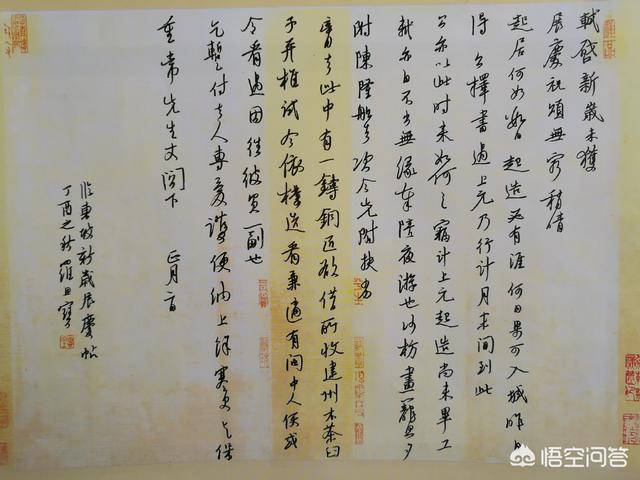 軾啓新歲未獲
展慶祝頌無窮稍晴
起居何如數日起造必有涯何日果可入城昨日
得公擇書過上元乃行計月末間到此
公亦以此時来如何々竊計上元起造尚未畢工
軾亦自不出無緣奉陪夜游也沙枋畫籠旦夕
附陳隆船去次今先附扶劣
膏去此中有一鑄銅匠欲借所收建州木茶臼
子并椎試令依樣造看兼適有閩中人便或
令看過因往彼買一副也
乞暫付去人專愛護便納上餘寒更乞保
重常先生丈閣下 正月二日
臨東坡新歲展慶帖
丁酉之秋羅
悟空问答